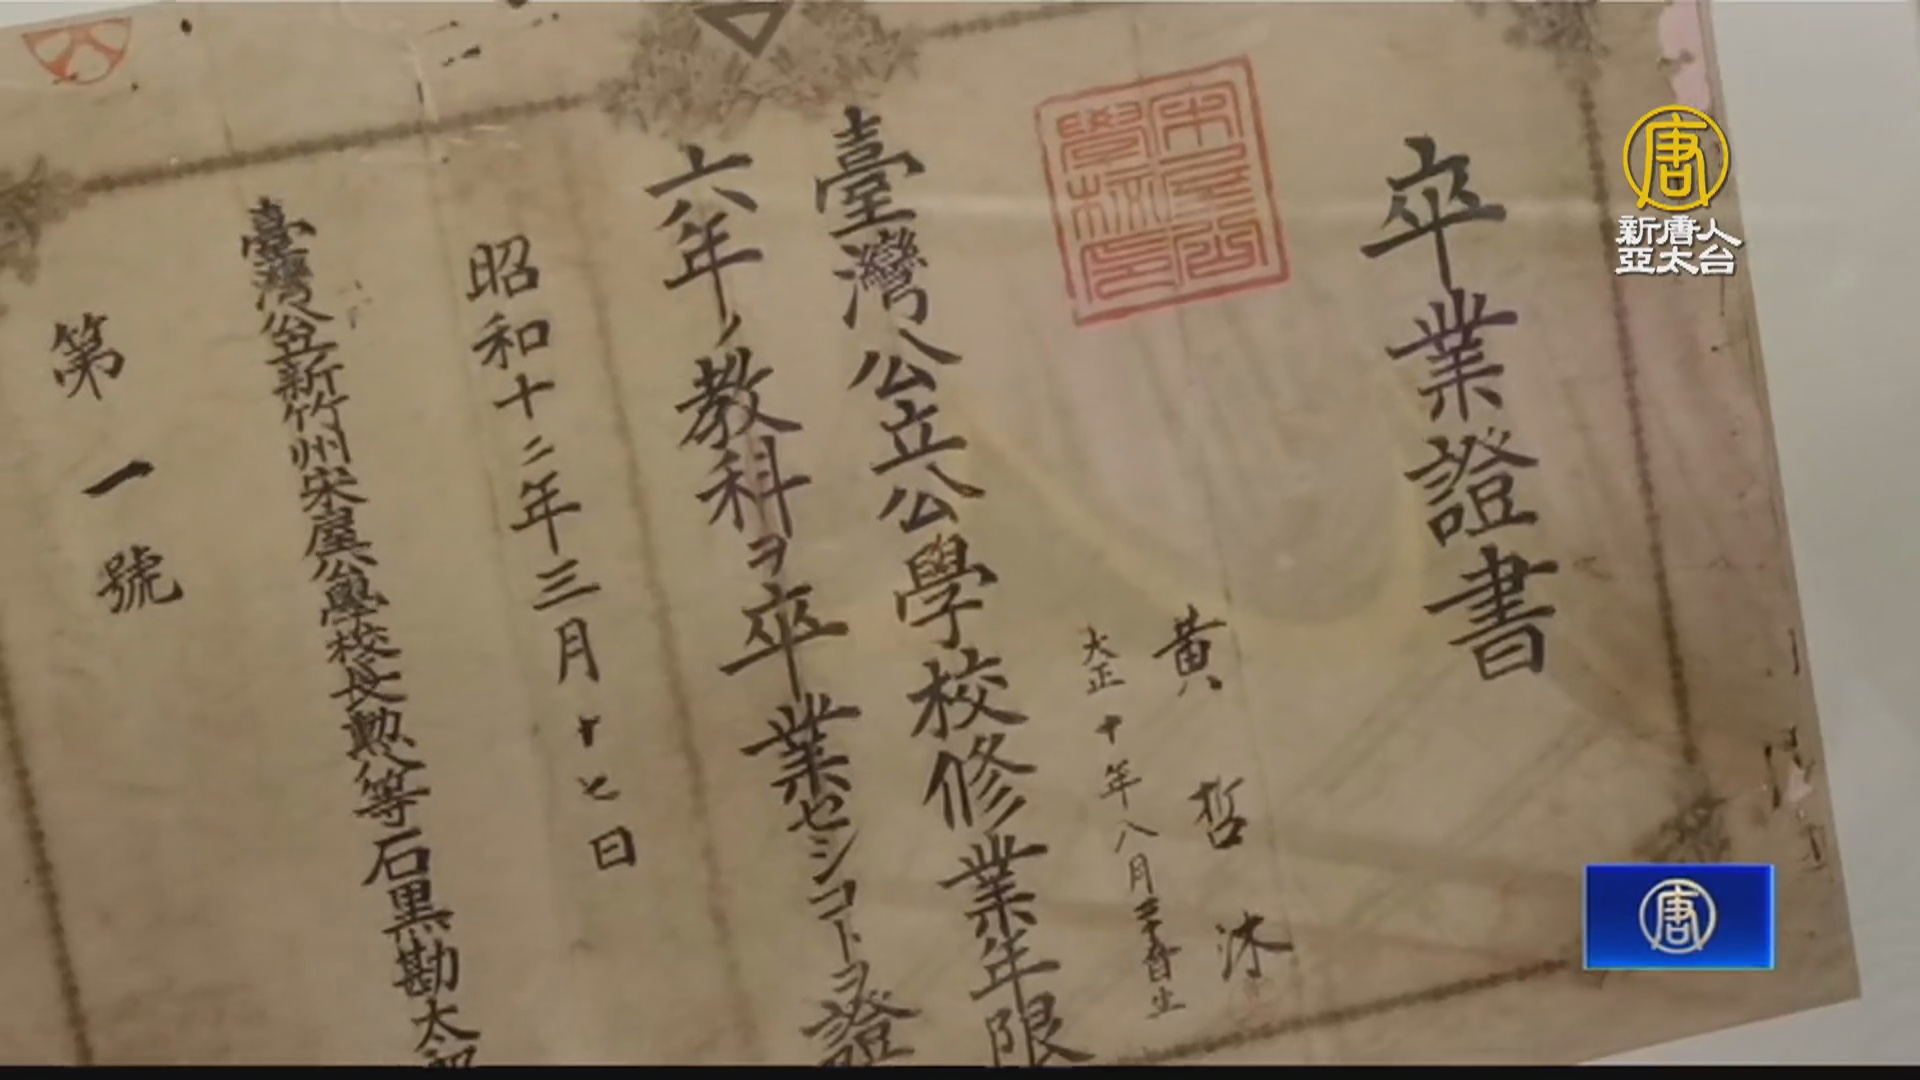 卒業證書
宋屋公
學校印
黃哲沐
大正十年八月
生
臺灣公立公學校修業年限
六年ノ教科ヲ卒業セシコトヲ證
昭和十二年三月十七日
臺灣公立新竹州宋屋公學校長勲八等石黒勘太郎
第一號
唐
新唐人
亞太台
唐